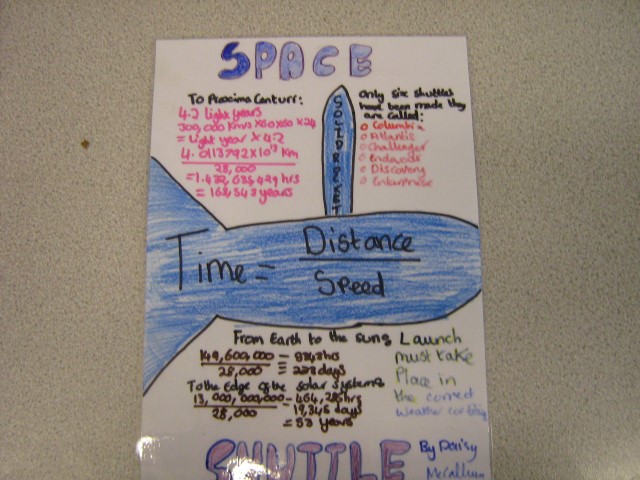 SPACE
To Proxima Centuri:
4.2 light years
300,000 Km/s x60x60x24
= light year x 4.2
4.013792x10¹³ Km
28,000
= 1,432,635,429 hrs
= 163,543 years
Only six shuttles
have been made they
are called:
Columbia
Atlantis
Challenger
Endavour
Discovery
Enterprise
Time = Distance
Speed
From Earth to the sun:
149,600,000 = 5343 hrs
28,000 = 223 days
To the Edge of the solar system:
13,000,000,000 = 464,285 hrs
28,000 = 19,345 days
= 53 years
Launch
must take
Place in
the correct
weather
SHUTTLE
By Daisy
McCallum